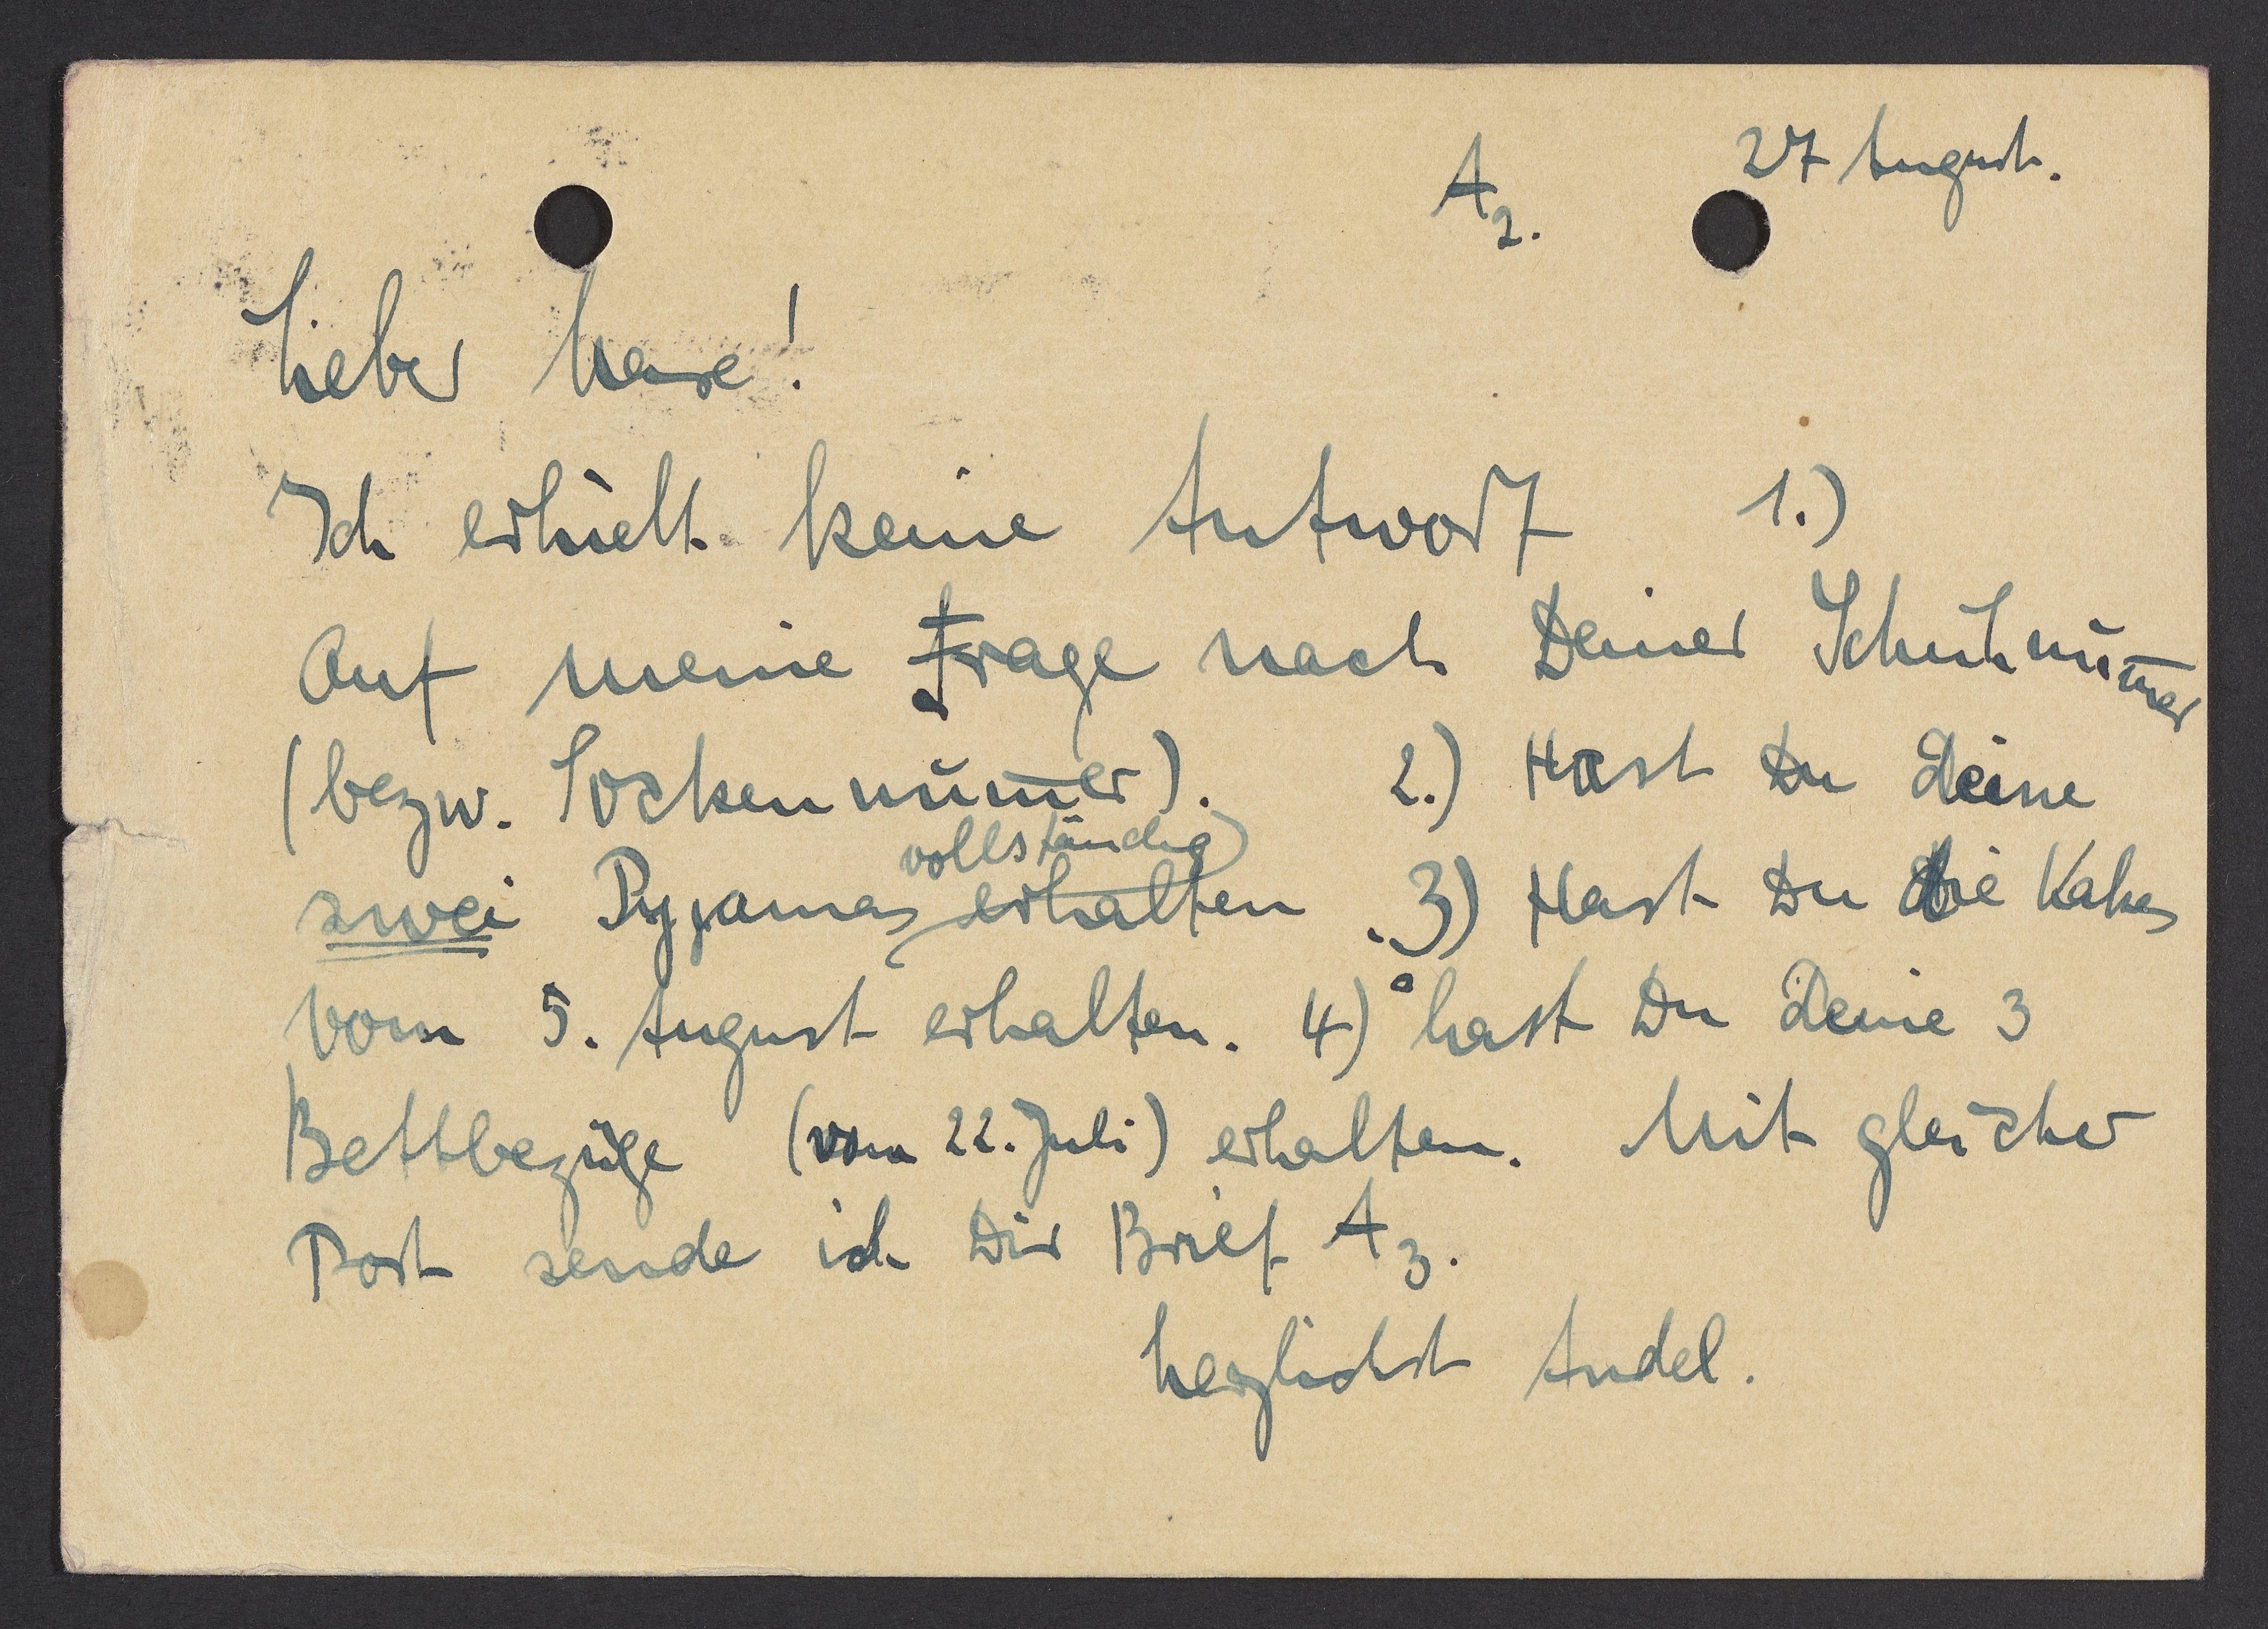 A2. 27 August.
Lieber Hase!
Ich erhielt keine Antwort 1.)
Auf meine Frage nach Deiner Schuhnum̅er
(bezw. Sockennum̅er). 2.) Hast Du deine
vollständig
zwei Pyjamas erhalten .3) Hast Du die Kakes
vom 5. August erhalten. 4) hast Du deine 3
Bettbezüge (vom 22. Juli) erhalten. Mit gleicher
Post sende ich Dir Brief A3.
herzlichst Andel.